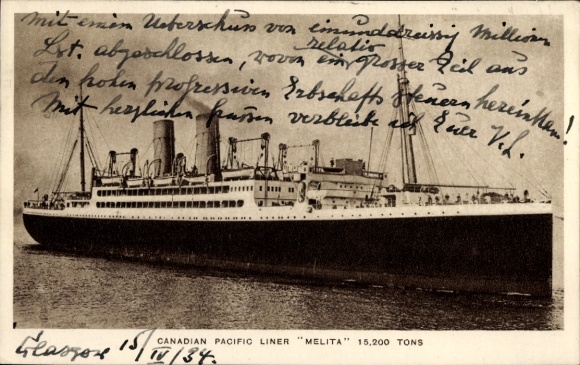 mit einem Ueberschuss von einunddreissig Million
Lst. abgeschlossen, wovon ein relativ grosser Teil aus
den hohen progressiven Erbschaftssteuern hereinkam!
Mit herzlichen Grüssen verbleibe ich Euer V.L.
CANADIAN PACIFIC LINER "MELITA" 15,200 TONS
Glasgow 15/IV/34.